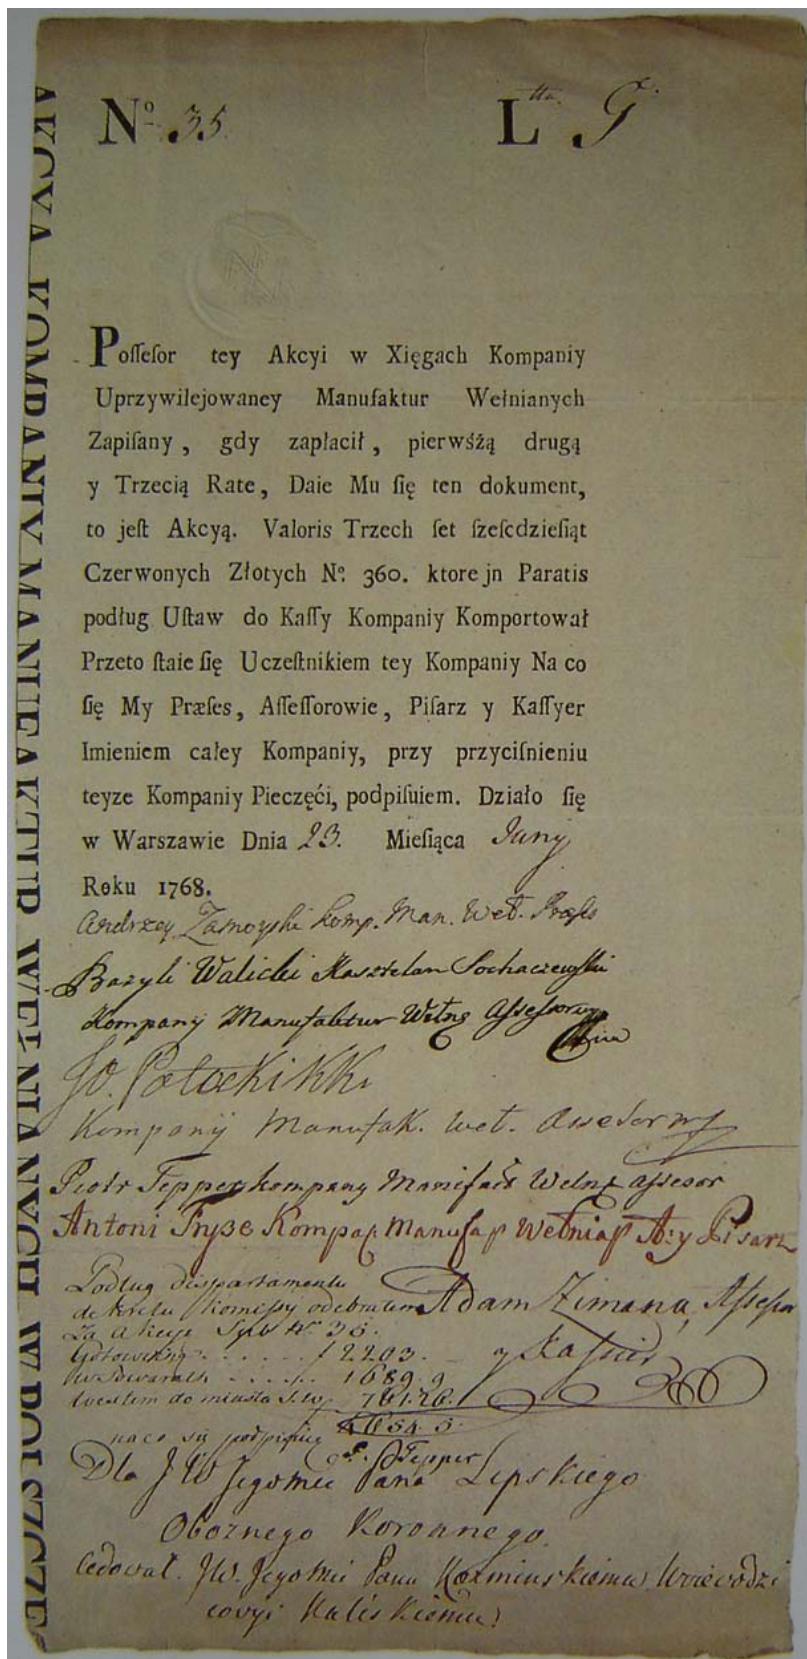 AKCYA KOMPANIY MANUFAKTUR WEŁNIANYCH W POLSZCZE
Nº 35. Ltta. G
Poſſeſor tey Akcyi w Xięgach Kompaniy
Uprzywilejowaney Manufaktur Wełnianych
Zapiſany, gdy zapłacił, pierwśżą drugą
y Trzecią Rate, Daie Mu ſię ten dokument,
to jeſt Akcyą. Valoris Trzech ſet ſzeſcdzieſiąt
Czerwonych Złotych Nº. 360. ktore jn Paratis
podług Uſtaw do Kaſſy Kompaniy Komportował
Przeto ſtaie ſię Uczeſtnikiem tey Kompaniy Na co
ſię My Præſes, Aſſeſſorowie, Piſarz y Kaſſyer
Imieniem całey Kompaniy, przy przyciſnieniu
teyze Kompaniy Pieczęći, podpiſuiem. Działo ſię
w Warszawie Dnia 23. Mieſiąca Juny
Roku 1768.
Andrzey Zamoyski Komp. Man. Weł. Præſes
Bazyli Walicki Kasztelan Sochaczewſki
Kompany Manufaktur Wełnę Aſſeſsor
Potocki
Kompanÿ Manufak. Weł. Asseſor
Piotr Tepper kompany Wełnę Aſſesor
Antoni Fryße Pisarz
Podług
dekretu Komissÿ odebrałem Adam Zimana, Aſſeſſor
Za Akcyę Nº 35.
2203. y Kaſsier
1689. 9
do miasta 761. 26.
na co się podpisuię 4654. 5.
P. Tepper
Dla J W Jegomci Pana Lipskiego
Oboznego Koronnego.
Cedował. JW. Jegomci Panu Kozminskiemu Woiewodzi
covyi Kaliskiemu